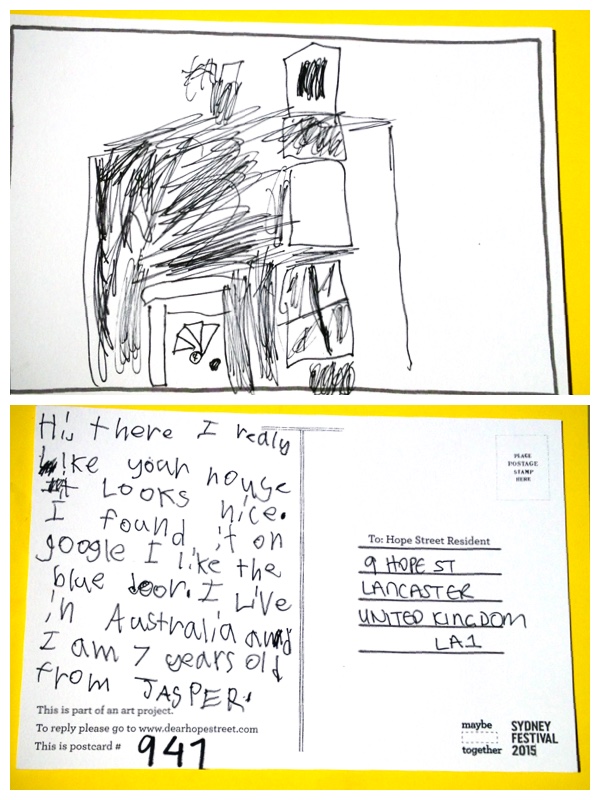 Hi there I realy
like your house
it Looks nice.
I found it on
google I like the
blue door. I Live
in Australia and
I am 7 years old
from JASPER.
This is part of an art project.
To reply please go to www.dearhopestreet.com
This is postcard # 941
PLACE
POSTAGE
STAMP
HERE
To: Hope Street Resident
9 HOPE ST
LANCASTER
UNITED KINGDOM
LA1
maybe
together
SYDNEY
FESTIVAL
2015